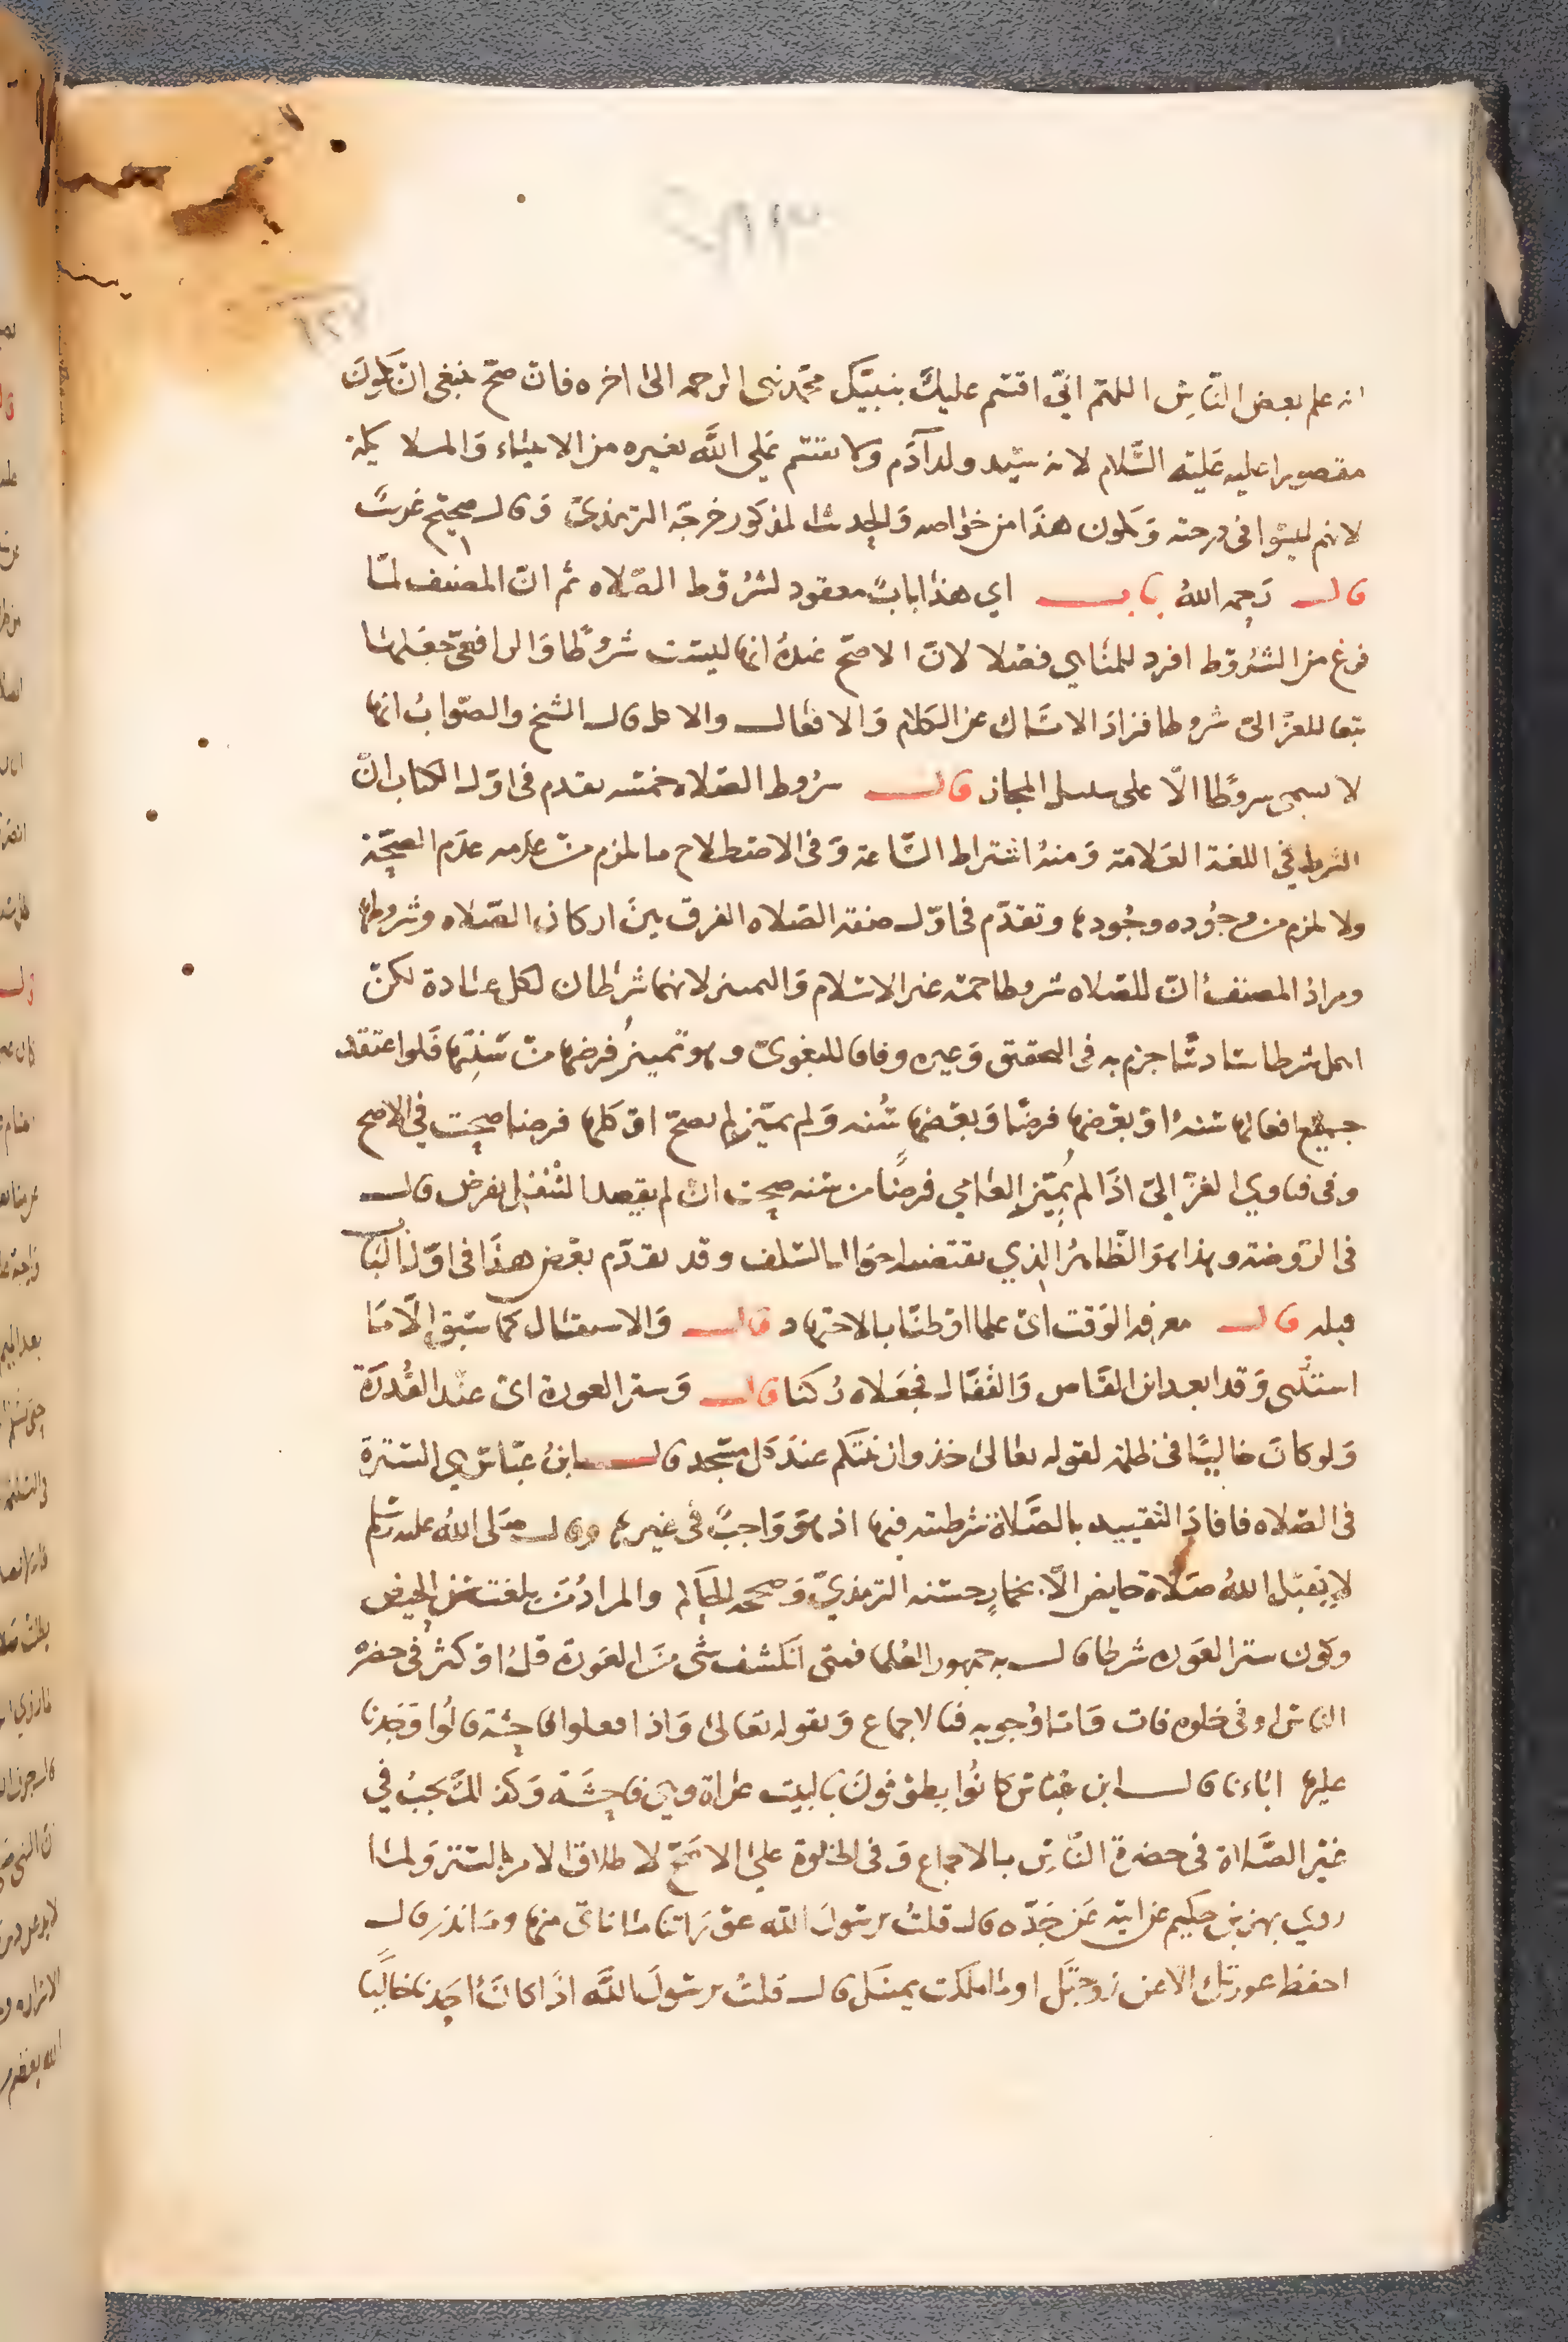 انه علم بعض الناس اللهم اني اقسم عليك بنبيك محمد نبي الرحمه الى اخره فان صح ينبغي ان يكون
مقصورا عليه عليه السلام لانه سيد ولد آدم ولا يقسم على الله بغيره من الانبياء والملائكة
لانهم ليسوا في درجته ويكون هذا من خواصه والحديث المذكور خرجه الترمذي وقال صحيح غريب
قال رحمه الله باب اي هذا باب معقود لشروط الصلاه ثم ان المصنف لما
فرغ من الشروط افرد للمناهي فصلا لان الاصح عنده انها ليست شروطا والرافعي جعلها
تبعا للغزالي شروطا فزاد الامساك عن الكلام والافعال والاكل قال الشيخ والصواب انها
لا تسمى شروطا الا على سبيل المجاز قال شروط الصلاه خمسه تقدم في اول الكتاب ان
الشرط في اللغة العلامة ومنه اشتراط الساعة وفي الاصطلاح ما يلزم من عدمه عدم الصحة
ولا يلزم من وجوده وجودها وتقدم في اول صفة الصلاه الفرق بين اركان الصلاه وشروطها
ومراد المصنف ان للصلاه شروطا خمسه غير الاسلام والتمييز لانهما شرطان لكل عبادة لكن
اهمل شرطا سادسا جزم به في التحقيق وغيره وفاقا للبغوي وهو تمييز فرضها من سننها فلو اعتقد
جميع افعالها سنه او بعضها فرضا وبعضها سنه ولم يميز لم يصح او كلها فرضا صحت في الاصح
وفي فتاوي الغزالي اذا لم يميز العامي فرضا من سنه صحت ان لم يقصد التنفل بفرض قال
في الروضة وهذا هو الظاهر الذي يقتضيه احوال السلف وقد تقدم بعض هذا في اول الباب
قبله قال معرفه الوقت اي علما او ظنا بالاجتهاد قال والاستقبال كما سبق الا ما
استثنى وقد ابعد ابن القاص والقفال فجعلاه ركنا قال وستر العورة اي عند القدرة
ولو كان خاليا في ظلمة لقوله تعالى خذوا زينتكم عند كل مسجد قال ابن عباس هي السترة
في الصلاه فافاد التقييد بالصلاة شرطيته فيها اذ هو واجب في غيرها وقال صلى الله عليه وسلم
لا يقبل الله صلاة حايض الا بخمار حسنه الترمذي وصححه الحاكم والمراد من بلغت سن الحيض
وكون ستر العوره شرطا قال به جمهور العلما فمتى انكشف شي من العورة قل او كثر في حضرة
الناس او في خلوه فات واما وجوبه فبالاجماع وبقوله تعالى واذا فعلوا فاحشة قالوا وجدنا
عليها اباءنا قال ابن عباس كانوا يطوفون بالبيت عراة وهي فاحشة وكذلك يجب في
غير الصلاة في حضرة الناس بالاجماع وفي الخلوة على الاصح لاطلاق الامر بالستر ولما
روي بهز بن حكيم عن ابيه عن جده قال قلت يرسول الله عوراتنا ما ناتى منها وما نذر قال
احفظ عورتك الا عن زوجتك او ما ملكت يمينك قال قلت يرسول الله اذا كان احدنا خاليا